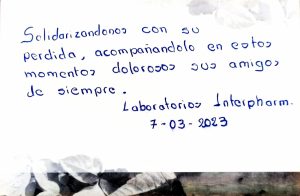 Solidarizandonos con su
perdida, acompañandolo en estos
momentos dolorosos sus amigos
de siempre.
Laboratorios Interpharm.
7-03-2023